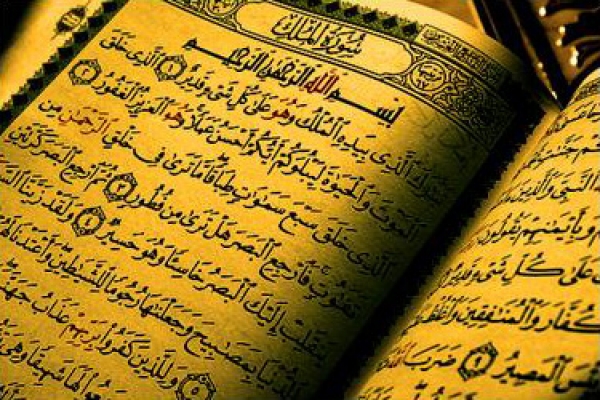 سُورَةُ الْمُلْكِ
بِسْمِ اللَّهِ الرَّحْمَٰنِ الرَّحِيمِ
تَبَٰرَكَ الَّذِي بِيَدِهِ الْمُلْكُ وَهُوَ عَلَىٰ كُلِّ شَيْءٍ قَدِيرٌ ١ الَّذِي خَلَقَ
الْمَوْتَ وَالْحَيَوٰةَ لِيَبْلُوَكُمْ أَيُّكُمْ أَحْسَنُ عَمَلًا وَهُوَ الْعَزِيزُ الْغَفُورُ ٢
الَّذِي خَلَقَ سَبْعَ سَمَٰوَٰتٍ طِبَاقًا مَّا تَرَىٰ فِي خَلْقِ الرَّحْمَٰنِ مِن
تَفَٰوُتٍ فَارْجِعِ الْبَصَرَ هَلْ تَرَىٰ مِن فُطُورٍ ٣ ثُمَّ ارْجِعِ الْبَصَرَ كَرَّتَيْنِ
يَنقَلِبْ إِلَيْكَ الْبَصَرُ خَاسِئًا وَهُوَ حَسِيرٌ ٤ وَلَقَدْ زَيَّنَّا
الدُّنْيَا بِمَصَٰبِيحَ وَجَعَلْنَٰهَا رُجُومًا لِّلشَّيَٰطِينِ وَأَعْتَدْنَا
وَلِلَّذِينَ كَفَرُوا بِرَبِّهِمْ عَذَابُ
لَهَا شَهِيقًا وَهِيَ
النَّبِيَّ وَالَّذِينَ
وَبِأَيْمَٰنِهِمْ يَقُولُونَ
عَلَىٰ كُلِّ شَيْءٍ قَدِيرٌ
الْكُفَّارَ وَالْمُنَٰفِقِينَ وَاغْلُظْ
وَبِئْسَ الْمَصِيرُ ٩ ضَرَبَ